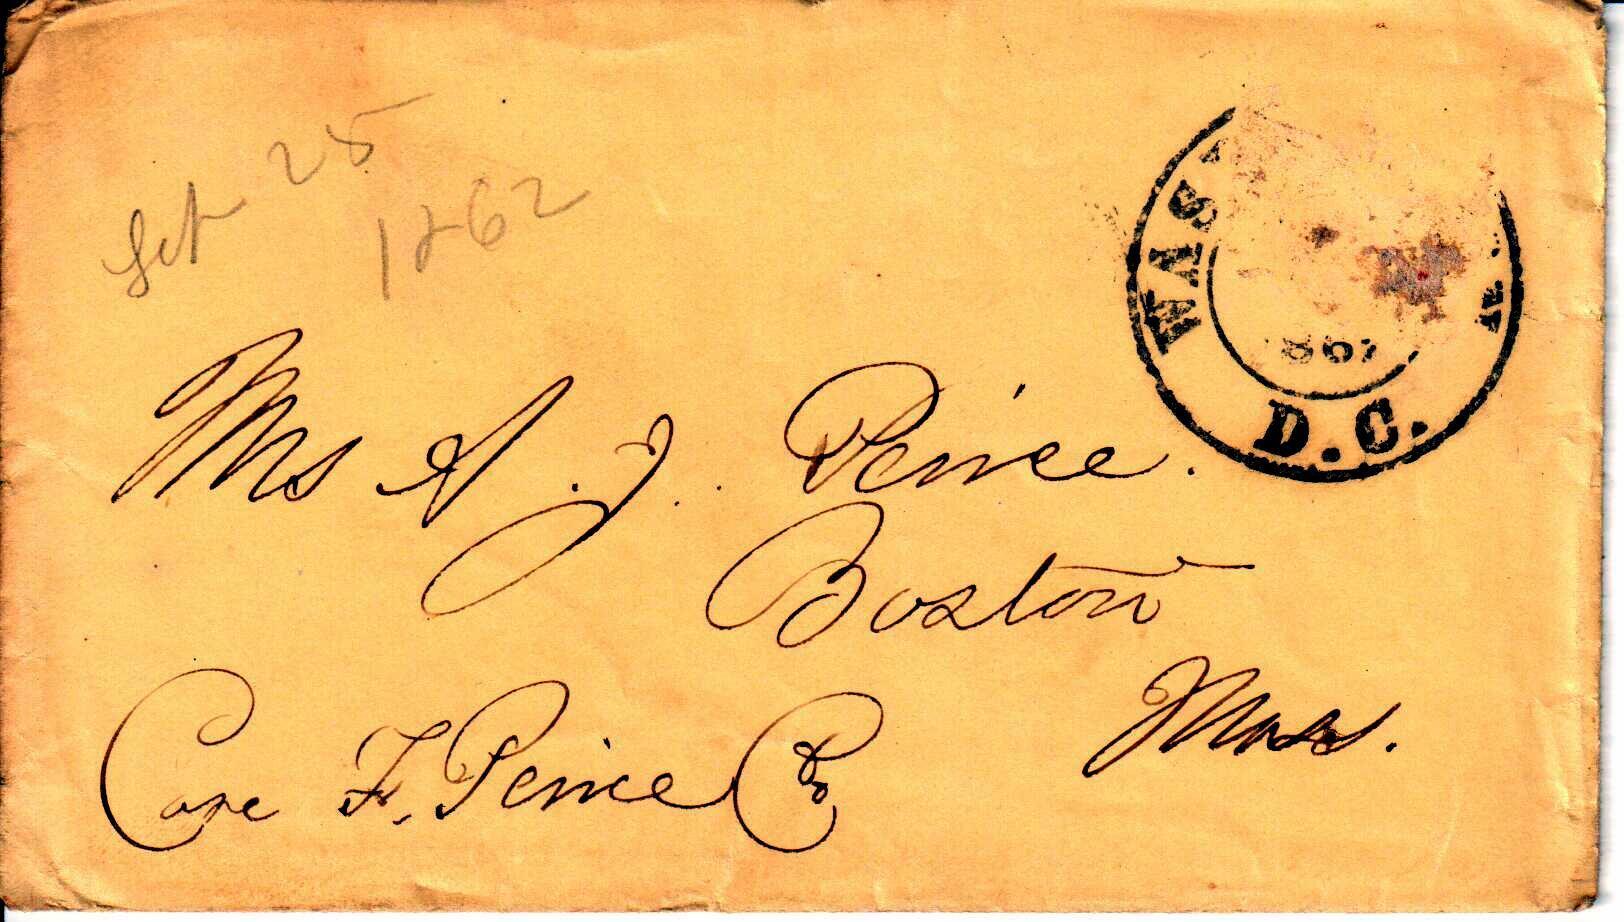 Sep 25
1862
WAS
186
D.C.
Mrs A. J. Peirce.
Boston
Mass.
Care F. Peirce & Co